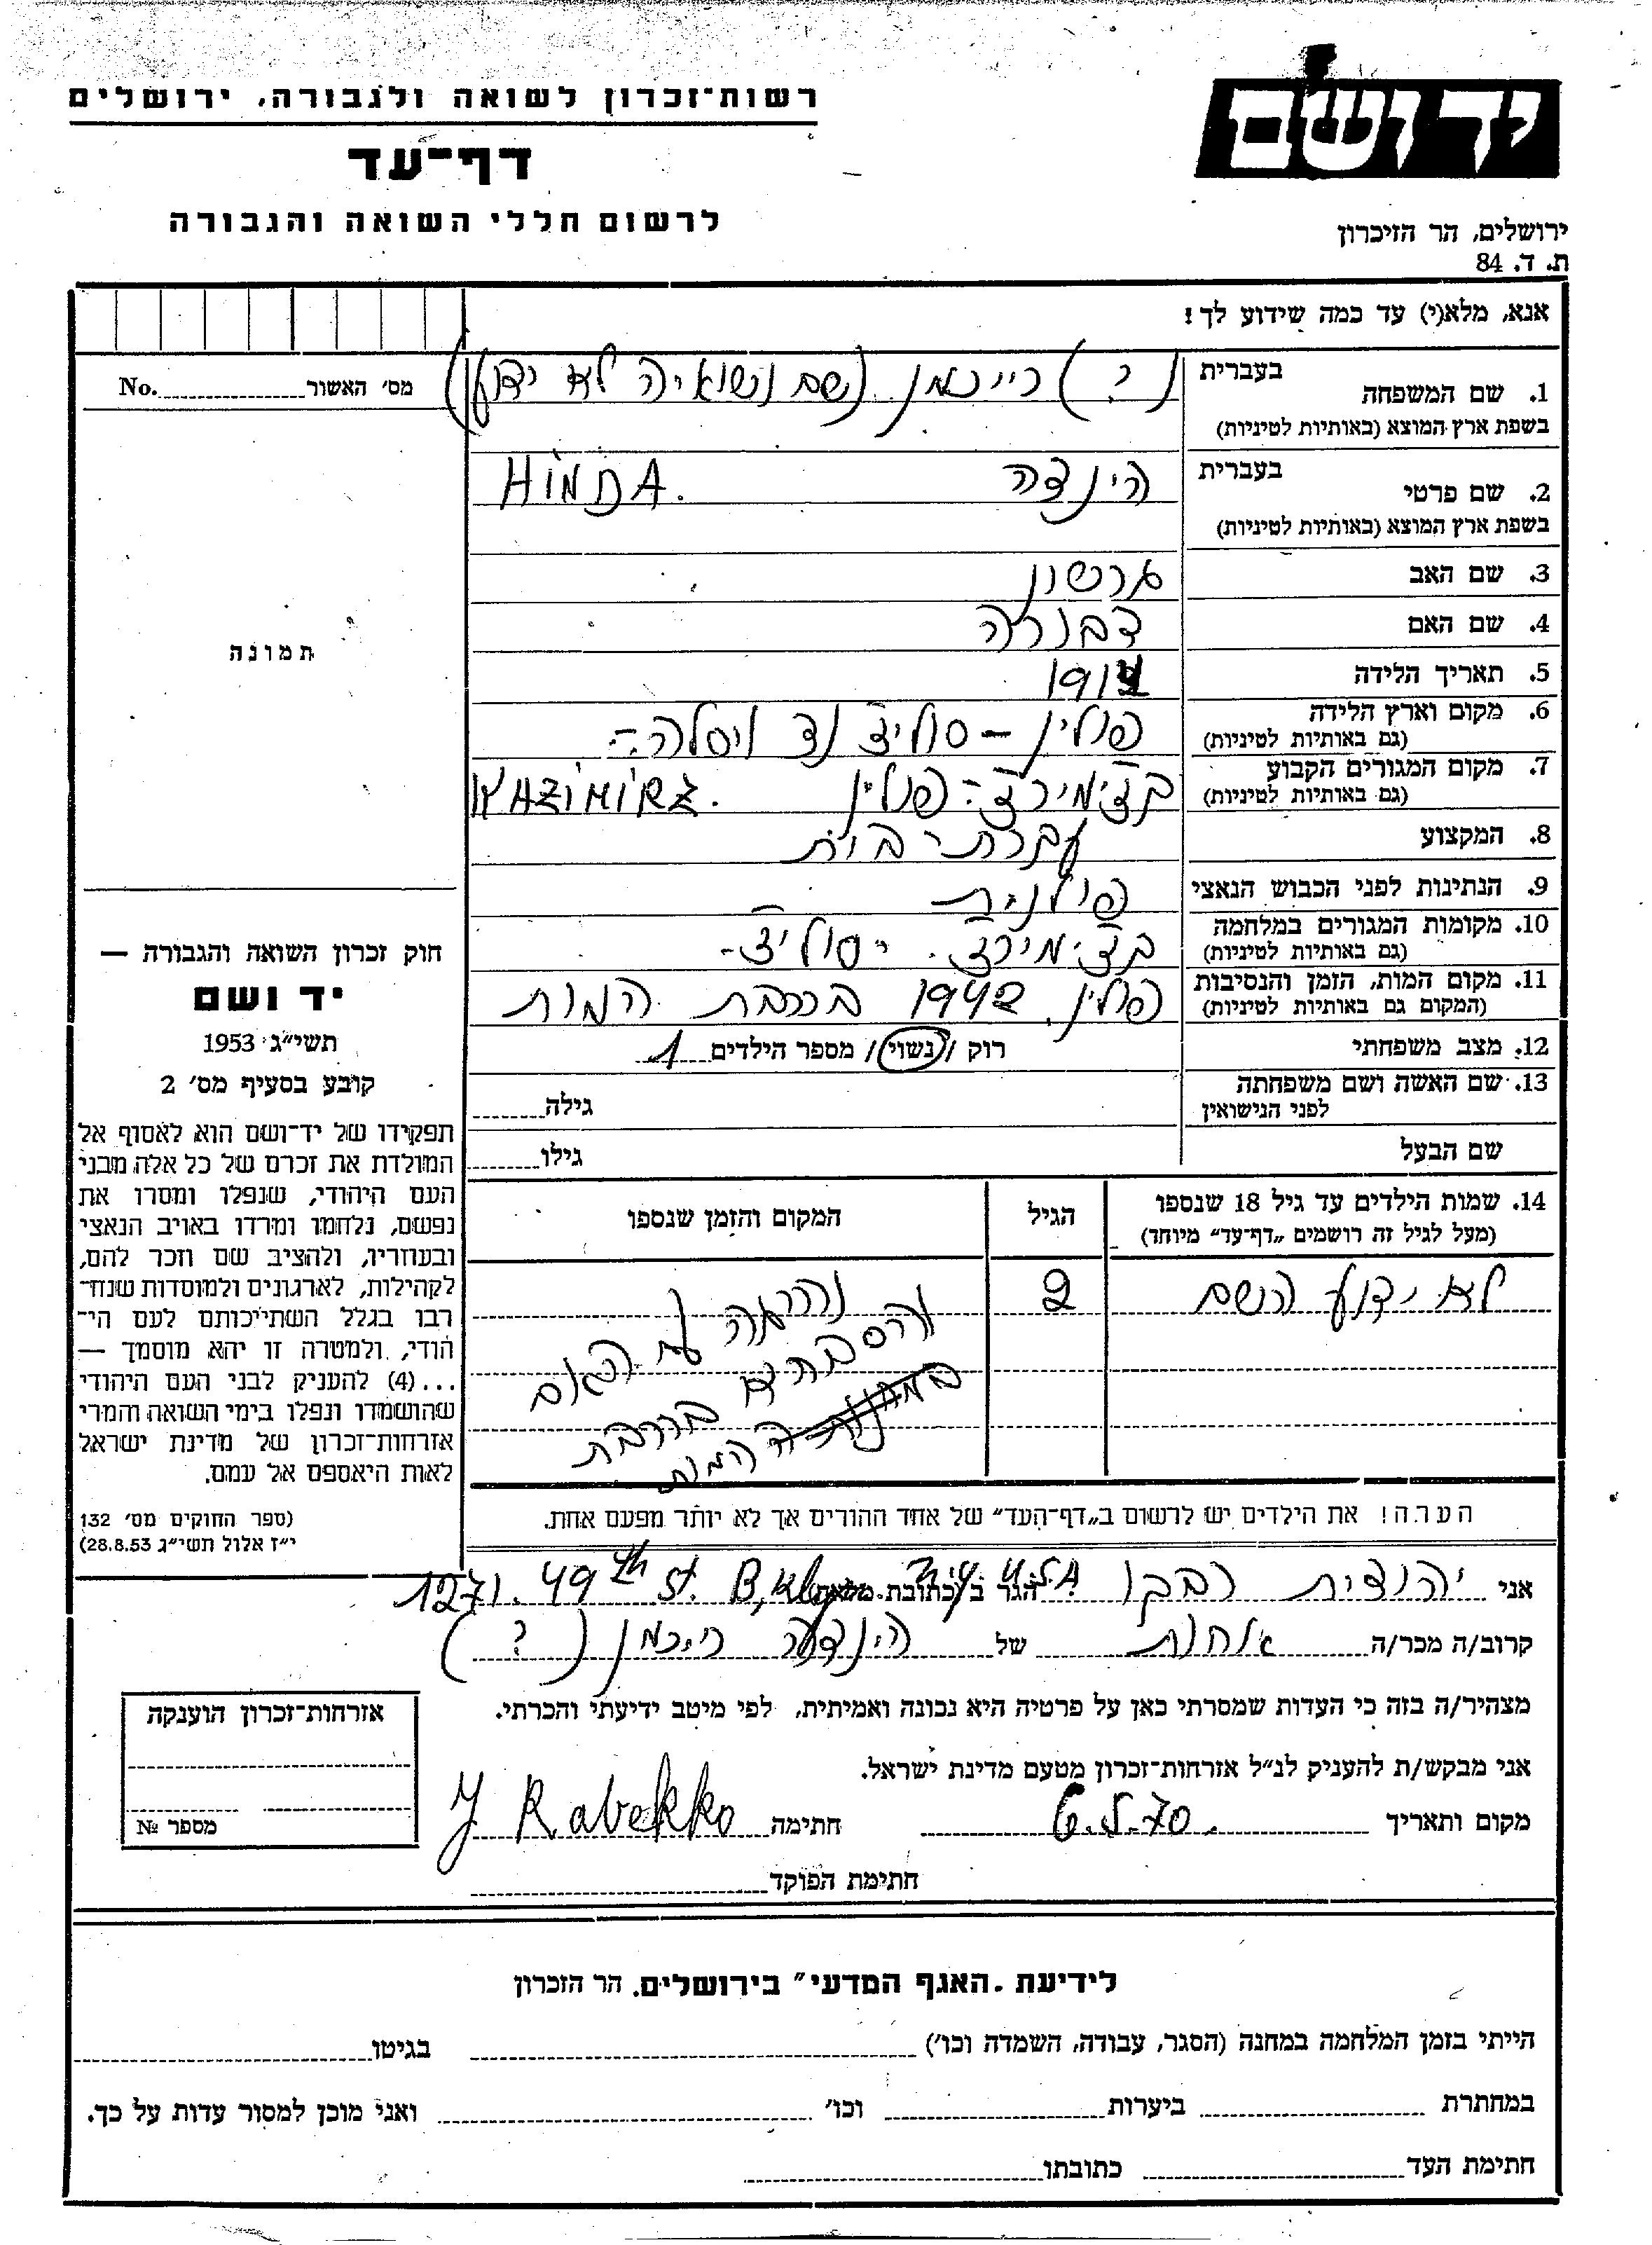 ידושם
רשות־זכרון לשואה ולגבורה, ירושלים
דף־עד
לרשום חללי השואה והגבורה
ירושלים, הר הזיכרון
ת. ד. 84
אנא, מלא(י) עד כמה שידוע לך!
מס' האשור No.
1. שם המשפחה בעברית (?) רייכמן (שם נשואיה לא ידוע)
בשפת ארץ המוצא (באותיות לטיניות)
2. שם פרטי בעברית הינדה HINDA.
בשפת ארץ המוצא (באותיות לטיניות)
3. שם האב גרשון
4. שם האם דבורה
תמונה
5. תאריך הלידה
6. מקום וארץ הלידה פולין – סוליץ נד ויסלה
(גם באותיות לטיניות)
7. מקום המגורים הקבוע קצימירז - פולין KAZIMIRZ.
(גם באותיות לטיניות)
8. המקצוע עקרת־בית
9. הנתינות לפני הכבוש הנאצי פולנית
10. מקומות המגורים במלחמה קצימירז. - סוליץ -
(גם באותיות לטיניות)
11. מקום המות, הזמן והנסיבות פולין, 1942 ברכבת המות
(המקום גם באותיות לטיניות)
12. מצב משפחתי רוק / נשוי / מספר הילדים 1
13. שם האשה ושם משפחתה
לפני הנישואין גילה
שם הבעל גילו
14. שמות הילדים עד גיל 18 שנספו הגיל המקום והזמן שנספו
(מעל לגיל זה רושמים „דף־עד" מיוחד)
לא ידוע השם 2
עם האם
ברכבת
המות
הערה! את הילדים יש לרשום ב„דף־העד" של אחד ההורים אך לא יותר מפעם אחת.
חוק זכרון השואה והגבורה —
יד ושם
תשי"ג 1953
קובע בסעיף מס' 2
תפקידו של יד־ושם הוא לאסוף אל
המולדת את זכרם של כל אלה מבני
העם היהודי, שנפלו ומסרו את
נפשם, נלחמו ומרדו באויב הנאצי
ובעוזריו, ולהציב שם וזכר להם,
לקהילות, לארגונים ולמוסדות שנח־
רבו בגלל השתייכותם לעם הי־
הודי, ולמטרה זו יהא מוסמך —
...(4) להעניק לבני העם היהודי
שהושמדו ונפלו בימי השואה והמרי
אזרחות־זכרון של מדינת ישראל
לאות היאספם אל עמם.
(ספר החוקים מס' 132
י"ז אלול תשי"ג 28.8.53)
אני יהודית רבקו הגר ב(כתובת מלאה) 1271. 49th St. B,klyn N.Y. U.S.A.
קרוב/ה מכר/ה אחות של הינדה רייכמן (?)
מצהיר/ה בזה כי העדות שמסרתי כאן על פרטיה היא נכונה ואמיתית, לפי מיטב ידיעתי והכרתי.
אני מבקש/ת להעניק לנ"ל אזרחות־זכרון מטעם מדינת ישראל.
מקום ותאריך 6.5.70. חתימה J Rabekko
חתימת הפוקד
אזרחות־זכרון הוענקה
מספר №
לידיעת .האגף המדעי" בירושלים. הר הזכרון
הייתי בזמן המלחמה במחנה (הסגר, עבודה, השמדה וכו') בגיטו
במחתרת ביערות וכו' ואני מוכן למסור עדות על כך.
חתימת העד כתובתו